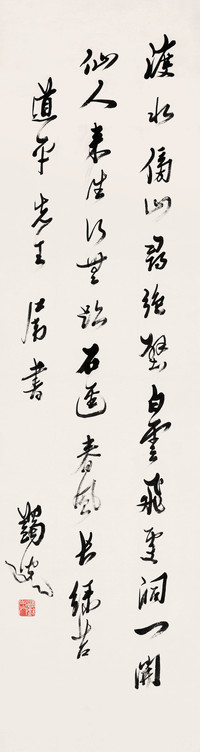 渡水傍山尋絕壁白雲飛處洞門開
仙人來往行無跡石逕春風長綠苔
道平先生屬書